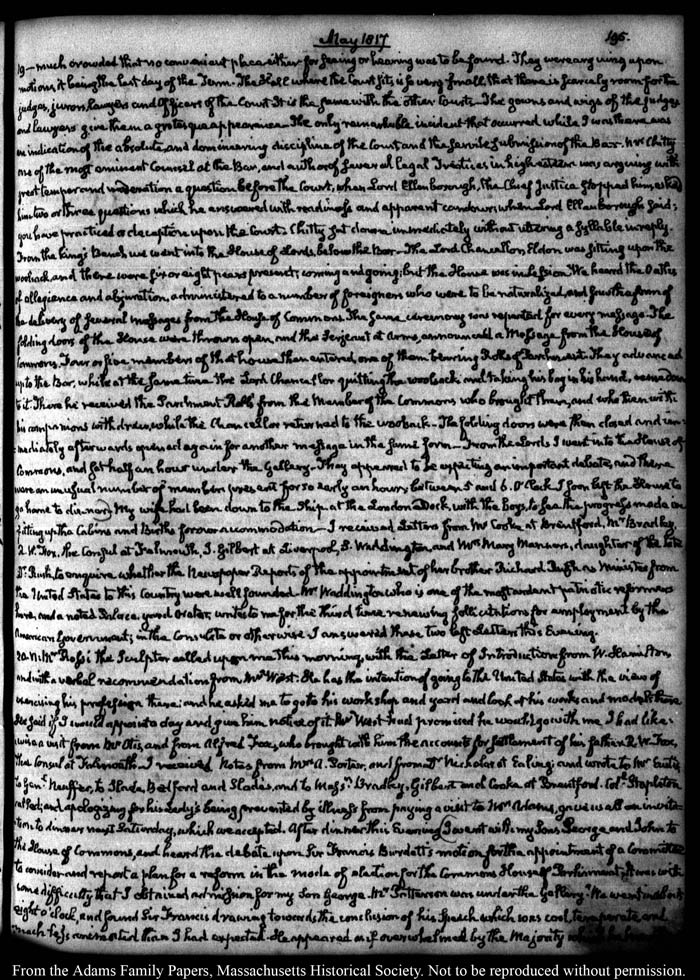 May 1817
195.
19 — much crowded that no convenient place either for seeing or hearing was to be found. They were arguing upon
motions, it being the last day of the Term. The Hall where the Court sits is so very small that there is scarcely room for the
judges, jurors, lawyers and Officers of the Court. It is the same with the other Courts — The gowns and wigs of the judges
and lawyers give them a grotesque appearance. The only remarkable incident that occurred while I was there was
an indication of the absolute and domineering discipline of the Court, and the servile submission of the Bar. Mr Chitty
one of the most eminent Counsel at the Bar, and author of several legal Treatises in high esteem was arguing with
great temper and moderation a question before the Court, when Lord Ellenborough, the Chief Justice stopped him, asked
him two or three questions which he answered with readiness and apparent candour, when Lord Ellenborough said;
you have practised a deception upon the Court. Chitty sat down immediately without uttering a syllable in reply.
From the King's Bench, we went into the House of Lords, before the Bar — The Lord Chancellor, Eldon was sitting upon the
woolsack, and there were six or eight peers present; coming and going; but the House was in session. We heard the Oaths
of allegiance and abjuration, administered to a number of foreigners who were to be naturalized, and saw the form of
the delivery of several messages from the House of Commons. The same ceremony was repeated for every message. The
folding doors of the House were thrown open, and the Serjeant at Arms, announced a Message from the House of
Commons. Four or five members of that house then entered, one of them bearing Rolls of Parchment. They advanced
up to the Bar, while at the same time the Lord Chancellor quitting the woolsack and taking his bag in his hand, came down
to it. There he received the Parchment Rolls from the Member of the Commons who brought them, and who then with
his companions withdrew, while the Chancellor returned to the woolsack — The folding doors were then closed and im-
mediately afterwards opened again for another message in the same form — From the Lords I went into the House of
Commons, and sat half an hour under the Gallery. They appeared to be expecting an important debate, and there
were an unusual number of members present for so early an hour, between 5 and 6. O'Clock. I soon left the House to
go home to dinner. My wife had been down to the Ship at the London Dock, with the Boys, to see the progress made in
fitting up the Cabins and Births for our accommodation — I received Letters from Mr Cooke at Brentford, Mr Bradley,
R. W. Fox, the Consul at Falmouth, J. Gilbert at Liverpool, S. Waddington, and Mrs Mary Manners, daughter of the late
Dr Rush, to enquire whether the Newspaper Reports of the appointment of her brother Richard Rush as Minister from
the United States to this Country were well founded. Mr Waddington who is one of the most ardent patriotic reformers
here, and a noted Palace-yard Orator, writes to me for the third time renewing sollicitations for employment by the
American Government; in the Consulate or otherwise. I answered these two last Letters this Evening.
20. Mr Rossi the Sculptor called upon me this morning, with the Letter of Introduction from W. Hamilton
and with a verbal recommendation from Mr West. He has the intention of going to the United States with the view of
exercising his profession there: and he asked me to go to his work shop and yard and look at his works and models there
He said if I would appoint a day and give him notice of it Mr West had promised he would go with me. I had like-
wise a visit from Mr Otis, and from Alfred Fox, who brought with him the accounts for settlement of his father R. W. Fox,
the Consul at Falmouth. I received Notes from Mrs A. Porter, and from Dr Nicholas at Ealing; and wrote to
to Genl and to Messrs Bradley, Gilbert and Cooke at Brentford. Coll Stapleton
called; and apologizing for his Lady's being prevented by illness from paying a visit to Mrs Adams, gave us all an invita-
tion to dinner next Saturday, which we accepted. After dinner this Evening I went with my Sons George and John to
the House of Commons, and heard the debate upon Sir Francis Burdett's motion for the appointment of a Committee
to consider and report a plan for a reform in the mode of election for the Commons House of Parliament; It was with
some difficulty that I obtained admission for my Son George. Mr Patterson was under the Gallery. We went in about
eight o'clock, and found Sir Francis drawing towards the conclusion of his Speech which was cool, temperate and
much less animated than I had expected. He appeared as if overwhelmed by the Majority which he
From the Adams Family Papers, Massachusetts Historical Society. Not to be reproduced without permission.